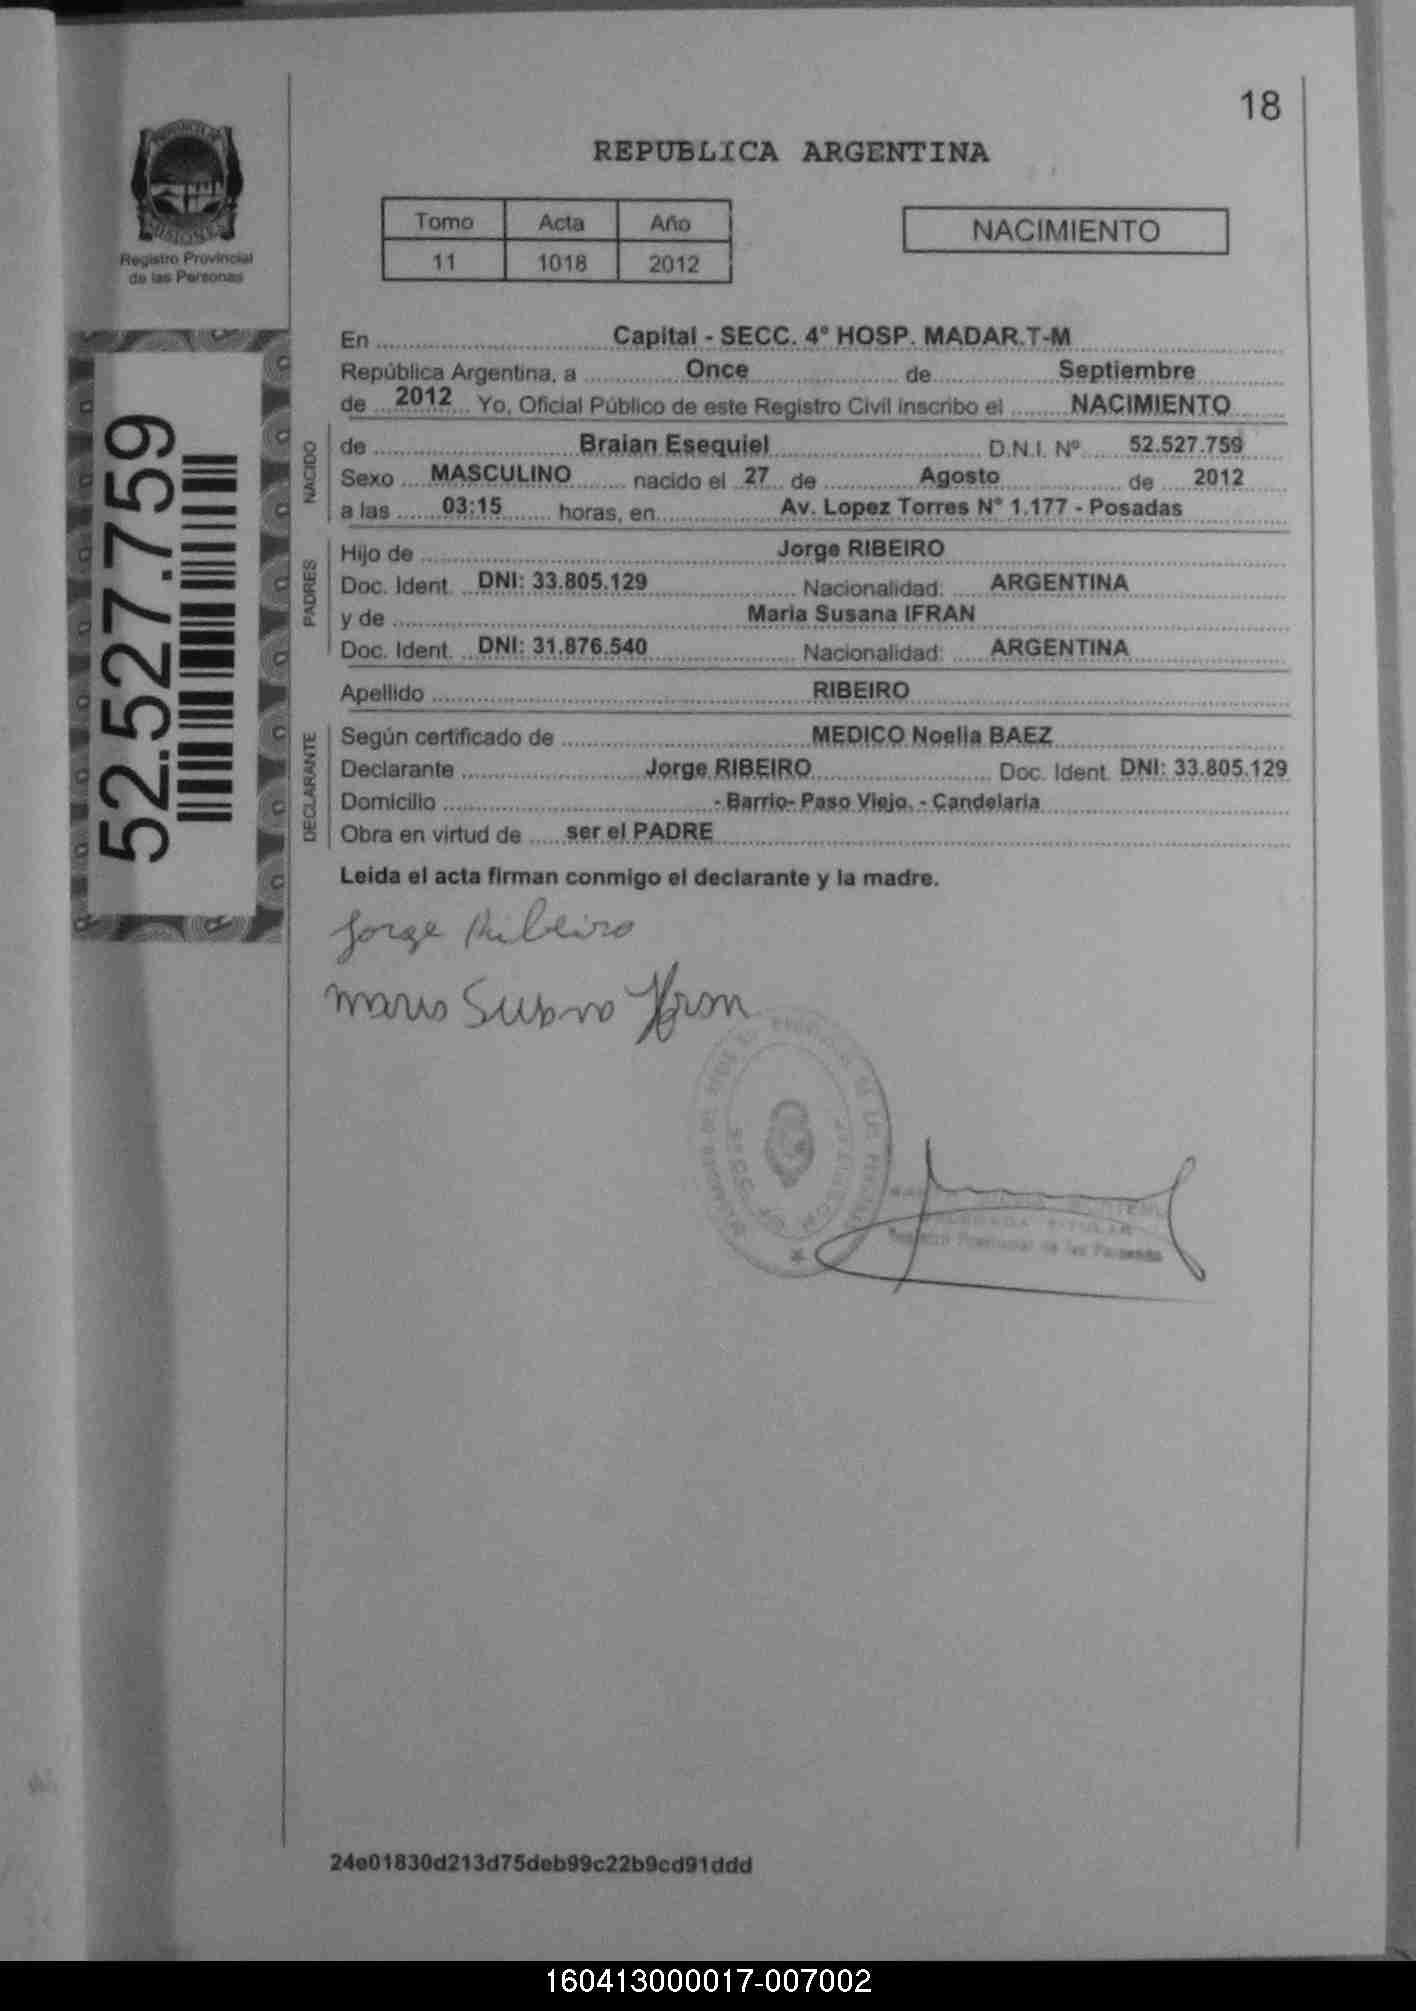 18
REPUBLICA ARGENTINA
Registro Provincial
de las Personas
Tomo Acta Año
11 1018 2012
NACIMIENTO
52.527.759
En Capital - SECC. 4º HOSP. MADAR.T-M
República Argentina, a Once de Septiembre
de 2012 Yo, Oficial Público de este Registro Civil inscribo el NACIMIENTO
NACIDO
de Braian Esequiel D.N.I. Nº 52.527.759
Sexo MASCULINO nacido el 27 de Agosto de 2012
a las 03:15 horas, en Av. Lopez Torres N° 1.177 - Posadas
PADRES
Hijo de Jorge RIBEIRO
Doc. Ident. DNI: 33.805.129 Nacionalidad: ARGENTINA
y de Maria Susana IFRAN
Doc. Ident. DNI: 31.876.540 Nacionalidad: ARGENTINA
Apellido RIBEIRO
DECLARANTE
Según certificado de MEDICO Noelia BAEZ
Declarante Jorge RIBEIRO Doc. Ident. DNI: 33.805.129
Domicilio - Barrio- Paso Viejo, - Candelaria
Obra en virtud de ser el PADRE
Leida el acta firman conmigo el declarante y la madre.
Jorge Ribeiro
Maria Susana Ifran
TITULAR
Registro Provincial de las Personas
24e01830d213d75deb99c22b9cd91ddd
160413000017-007002